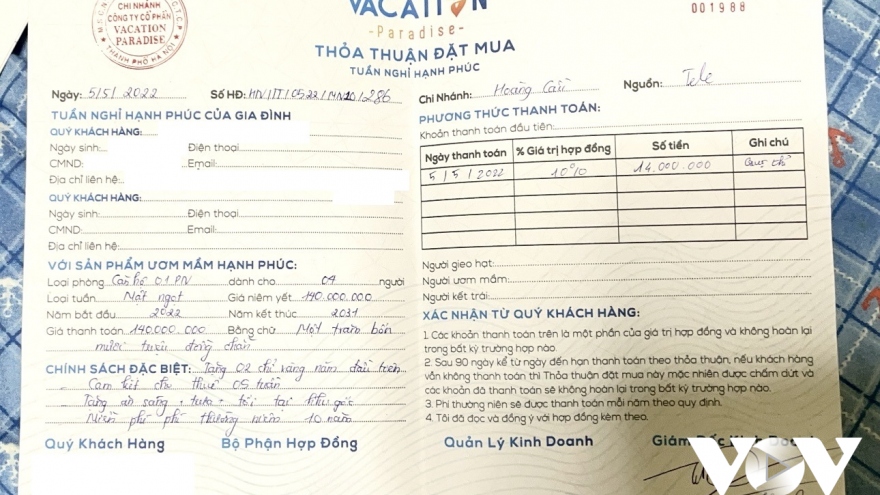 CHI NHÁNH
CÔNG TY CỔ PHẦN
VACATION
PARADISE
THÀNH PHỐ HÀ NỘI
VACATION
-Paradise-
THỎA THUẬN ĐẶT MUA
TUẦN NGHỈ HẠNH PHÚC
001988
Ngày: 5/5/2022 Số HĐ: HN/IT/0522/MN10/286
Chi Nhánh: Hoàng Cầu Nguồn: Tele
TUẦN NGHỈ HẠNH PHÚC CỦA GIA ĐÌNH
QUÝ KHÁCH HÀNG:
Ngày sinh: Điện thoại
CMND: Email:
Địa chỉ liên hệ:
QUÝ KHÁCH HÀNG:
Ngày sinh: Điện thoại
CMND: Email:
Địa chỉ liên hệ:
VỚI SẢN PHẨM ƯƠM MẦM HẠNH PHÚC:
Loại phòng: Căn hộ 01 PN dành cho 04 người
Loại tuần: Mật ngọt Giá niêm yết: 140.000.000
Năm bắt đầu 2022 Năm kết thúc 2031
Giá thanh toán: 140.000.000 Bằng chữ Một trăm bốn
mươi triệu đồng chẵn
CHÍNH SÁCH ĐẶC BIỆT: Tặng 02 chỉ vàng năm đầu tiên
- Cam kết cho thuê 05 tuần
- Tặng ăn sáng + trưa + tối tại khu gốc
- Miễn phí phí thường niên 10 năm
Quý Khách Hàng Bộ Phận Hợp Đồng
PHƯƠNG THỨC THANH TOÁN:
Khoản thanh toán đầu tiên:
Ngày thanh toán % Giá trị hợp đồng Số tiền Ghi chú
5/5/2022 10% 14.000.000 Quẹt thẻ
Người gieo hạt:
Người ươm mầm:
Người kết trái:
XÁC NHẬN TỪ QUÝ KHÁCH HÀNG:
1. Các khoản thanh toán trên là một phần của giá trị hợp đồng và không hoàn lại
trong bất kỳ trường hợp nào.
2. Sau 90 ngày kể từ ngày đến hạn thanh toán theo thỏa thuận, nếu khách hàng
vẫn không thanh toán thì Thỏa thuận đặt mua này mặc nhiên được chấm dứt và
các khoản đã thanh toán sẽ không hoàn lại trong bất kỳ trường hợp nào.
3. Phí thường niên sẽ được thanh toán mỗi năm theo quy định.
4. Tôi đã đọc và đồng ý với hợp đồng kèm theo.
Quản Lý Kinh Doanh Giám Đốc Kinh Doanh
VOV